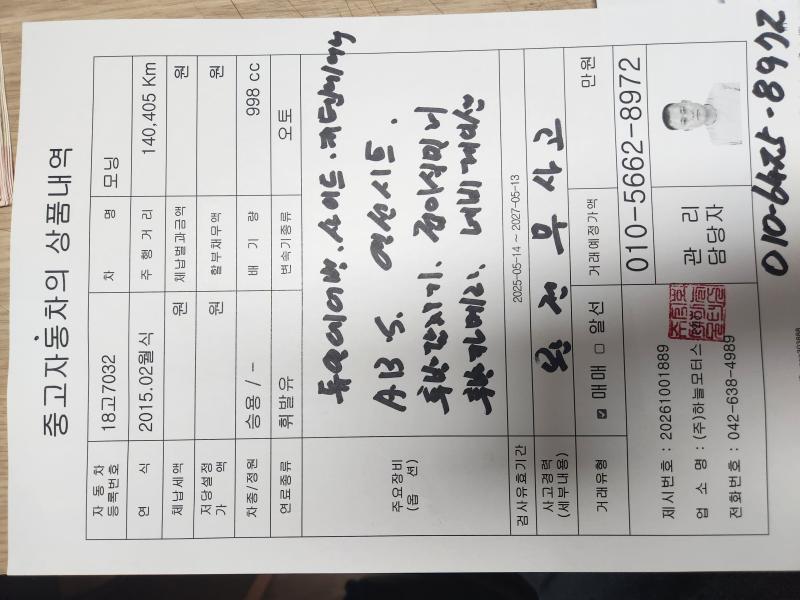 중고자동차의 상품내역
자동차등록번호 18고7032 차 명 모닝
연 식 2015.02월식 주행거리 140,405 Km
체납세액 원 체납벌과금액 원
저당설정가 원 할부채무액 원
차종/정원 승용 / - 배 기 량 998 cc
연료종류 휘발유 변속기종류 오토
주요장비 (옵 션)
듀얼에어백. 사이드.
ABS. 열선시트.
후방감지기. 접이식미러
후방카메라. 네비게이션
검사유효기간 2025-05-14 ~ 2027-05-13
사고경력 (세부내용) 완전 무사고
거래유형 ☑ 매매 □ 알선 거래예정가액 만원
제시번호 : 20261001889
업 소 명 : (주)하늘모터스
전화번호 : 042-638-4989
관 리
담당자
010-5662-8972
010-6475-8972